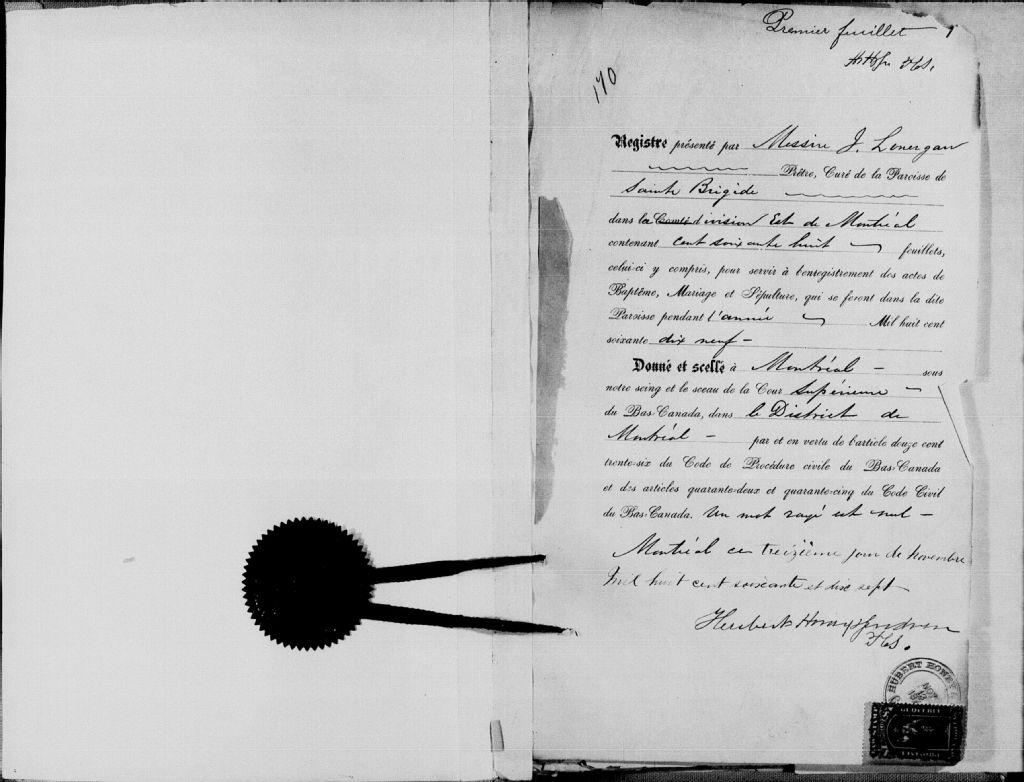 Premier feuillet 1
170
Registre présenté par Messire J. Lonergan
Prêtre, Curé de la Paroisse de
Sainte Brigide
dans la Comté division Est de Montréal
contenant cent soixante huit feuillets,
celui-ci y compris, pour servir à l'enregistrement des actes de
Baptême, Mariage et Sépulture, qui se feront dans la dite
Paroisse pendant l'année Mil huit cent
soixante dix neuf -
Donné et scellé à Montréal - sous
notre seing et le sceau de la Cour Supérieure -
du Bas-Canada, dans le District de
Montréal - par et en vertu de l'article douze cent
trente-six du Code de Procédure civile du Bas-Canada
et des articles quarante-deux et quarante-cinq du Code Civil
du Bas-Canada. Un mot rayé est nul -
Montréal ce treizième jour de Novembre
Mil huit cent soixante et dix sept
HUBERT
NOV
QUEBEC